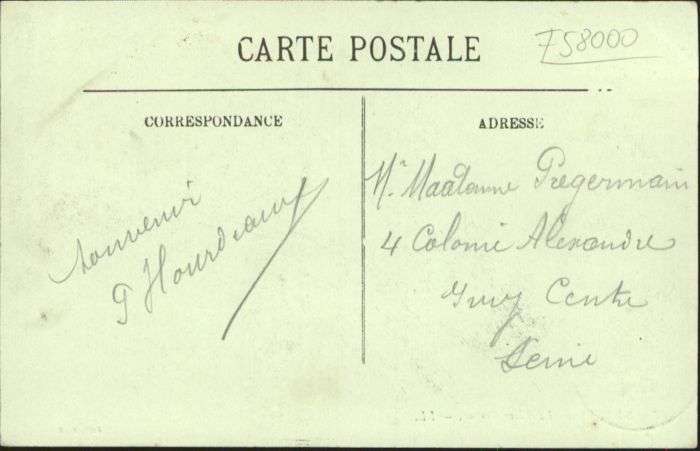 CARTE POSTALE
758000
CORRESPONDANCE
ADRESSE
Souvenir
P Hourdeaux
Mr Madame Prégermain
4 Colonie Alexandre
Ivry Centre
Seine